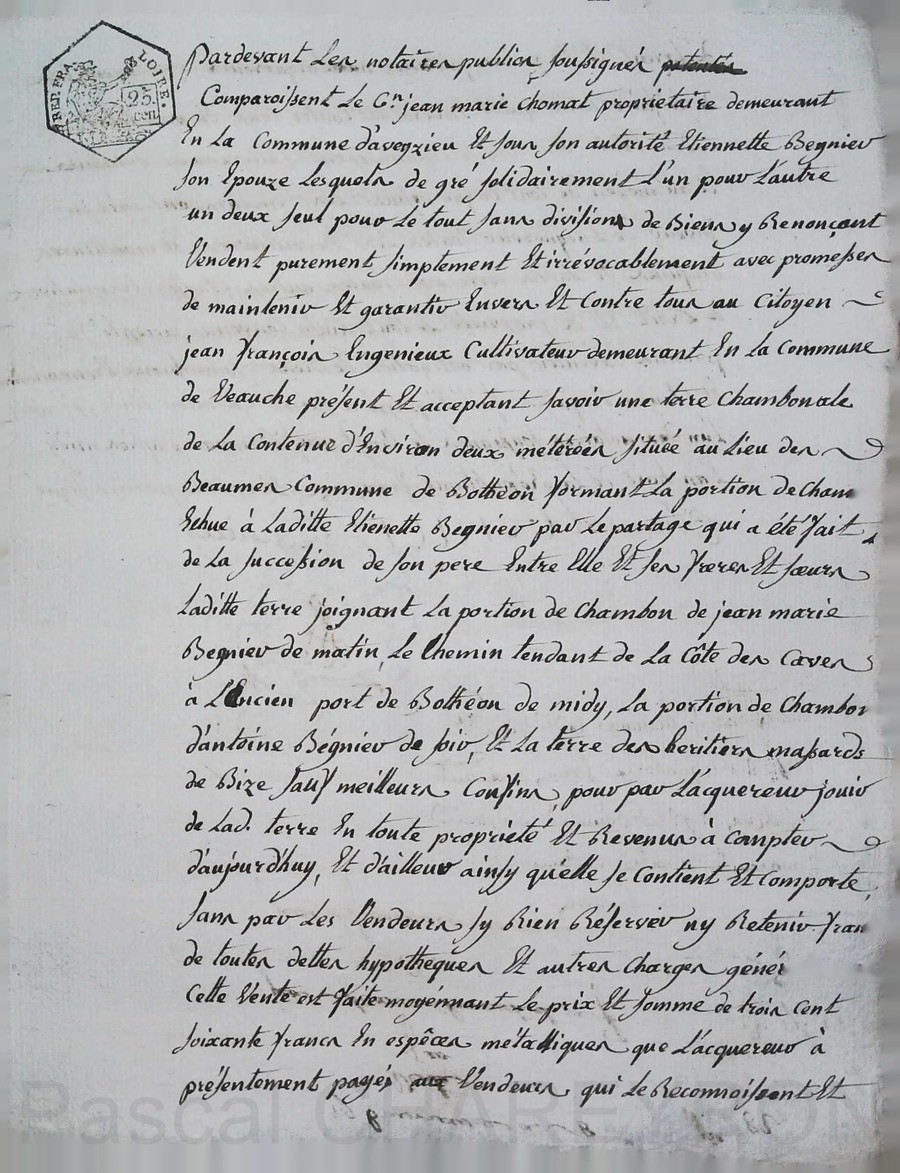 REP. FRA. LOIRE.
25. cen.
Pardevant Les notaires publics soussignés patentés
Comparoissent Le C.en jean marie Chomat proprietaire demeurant
En La Commune d'aveyzieu Et sous son autorité Etiennette Begnier
son Epouze Lesquels de gré solidairement L'un pour L'autre
un deux seul pour Le tout sans divisions de Biens y Renonçant
Vendent purement simplement Et irrévocablement avec promesses
de maintenir Et garantir Envers Et Contre tous au Citoyen
jean françois Engenieux Cultivateur demeurant En La Commune
de Veauche présent Et acceptant savoir une terre Chambonale
de La Contenue d'Environ deux métérées située au Lieu des
Beaumes Commune de Bothéon formant La portion de Cham
Echue à Laditte Etienette Begnier par Le partage qui a été fait
de La succession de son pere Entre Elle Et ses freres Et sœurs
Laditte terre joignant La portion de Chambon de jean marie
Begnier de matin, Le Chemin tendant de La Côte des Caves
à L'Encien port de Bothéon de midy, La portion de Chambon
d'antoine Bégnier de soir, Et La terre des heritiers massards
de Bize sauf meilleurs Confins, pour par L'acquereur jouir
de Lad. terre En toute propriété Et Revenus à Compter
d'aujourd'huy, Et d'ailleur ainsy qu'elle se Contient Et Comporte,
sans par Les Vendeurs sy Rien Réserver ny Retenir fran
de toutes dettes hypotheques Et autres Charges génér
Cette Vente est faite moyénnant Le prix Et somme de trois cent
soixante francs En espêces métalliques que L'acquereur à
présentement payés aux Vendeurs, qui Le Reconnoissent Et